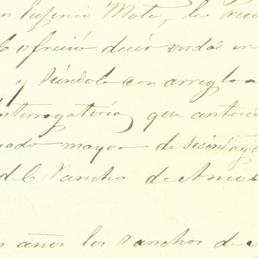 n Eugenio Mota, le reci
ofreció decir verdad en
y siendolo con arreglo a
interrogatorio que antecede
mayor de sesenta y
del Rancho de
s años los ranchos de